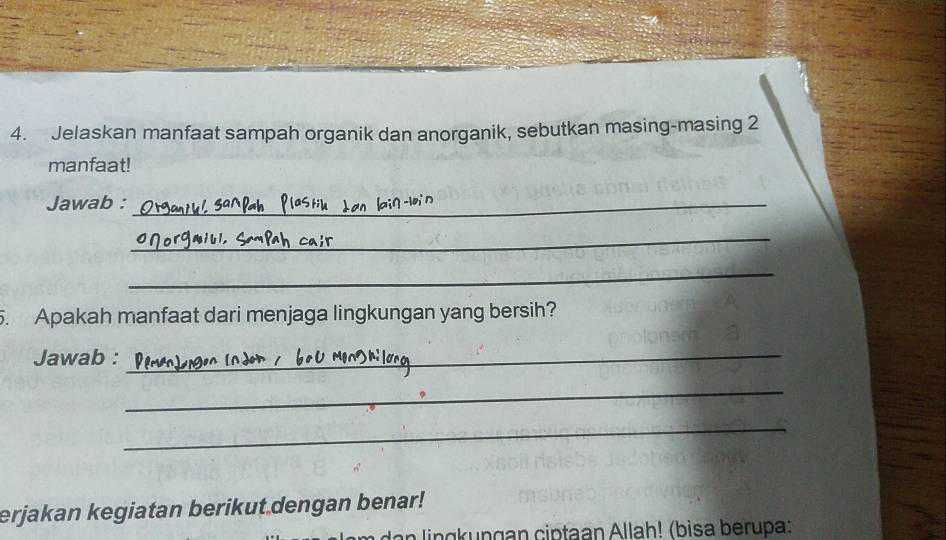 4. Jelaskan manfaat sampah organik dan anorganik, sebutkan masing-masing 2
manfaat!
Jawab : Organik! sanpah Plastik dan lain-lain
anorganik!. Sampah cair
5. Apakah manfaat dari menjaga lingkungan yang bersih?
Jawab : Pemandangan indah, bau menghilang
erjakan kegiatan berikut dengan benar!
dan lingkungan ciptaan Allah! (bisa berupa: